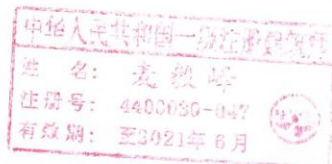 中华人民共和国一级注册建筑师
姓 名:
注册号: 4400030-047
有效期: 至2021年6月